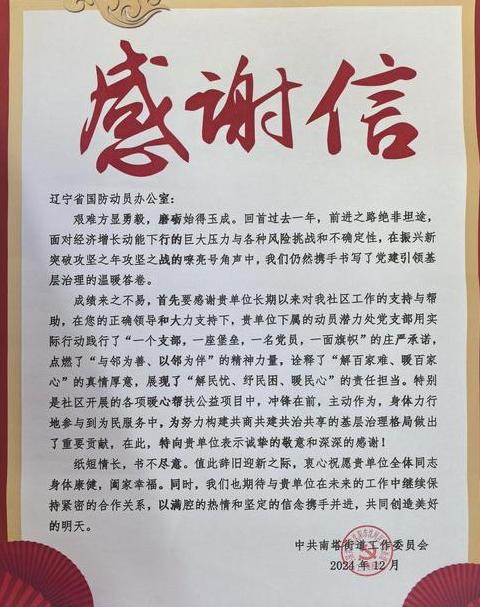 感谢信
辽宁省国防动员办公室：
艰难方显勇毅，磨砺始得玉成。回首过去一年，前进之路绝非坦途，
面对经济增长动能下行的巨大压力与各种风险挑战和不确定性，在振兴新
突破攻坚之年攻坚之战的嘹亮号角声中，我们仍然携手书写了党建引领基
层治理的温暖答卷。
成绩来之不易，首先要感谢贵单位长期以来对我社区工作的支持与帮
助，在您的正确领导和大力支持下，贵单位下属的动员潜力处党支部用实
际行动践行了“一个支部，一座堡垒，一名党员，一面旗帜”的庄严承诺，
点燃了“与邻为善、以邻为伴”的精神力量，诠释了“解百家难、暖百家
心”的真情厚意，展现了“解民忧、纾民困、暖民心”的责任担当。特别
是社区开展的各项暖心帮扶公益项目中，冲锋在前，主动作为，身体力行
地参与到为民服务中，为努力构建共商共建共治共享的基层治理格局做出
了重要贡献，在此，特向贵单位表示诚挚的敬意和深深的感谢！
纸短情长，书不尽意。值此辞旧迎新之际，衷心祝愿贵单位全体同志
身体康健，阖家幸福。同时，我们也期待与贵单位在未来的工作中继续保
持紧密的合作关系，以满腔的热情和坚定的信念携手并进，共同创造美好
的明天。
中共南塔街道工作委员会
2024年12月